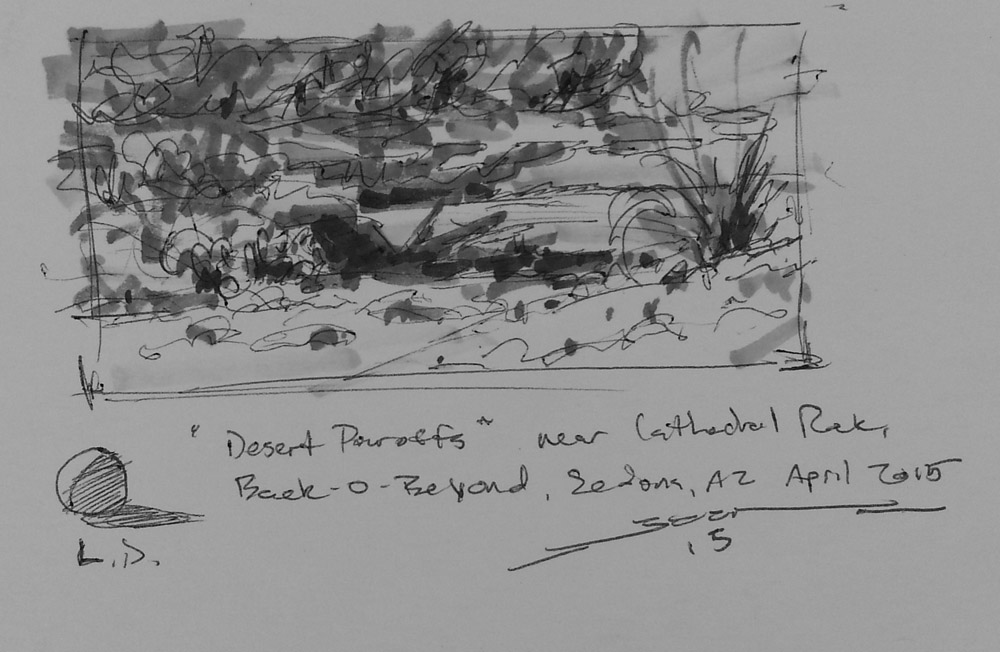 "Desert Pouroffs" near Cathedral Rock,
Back-O-Beyond, Sedona, AZ April 2015
.5
L.D.